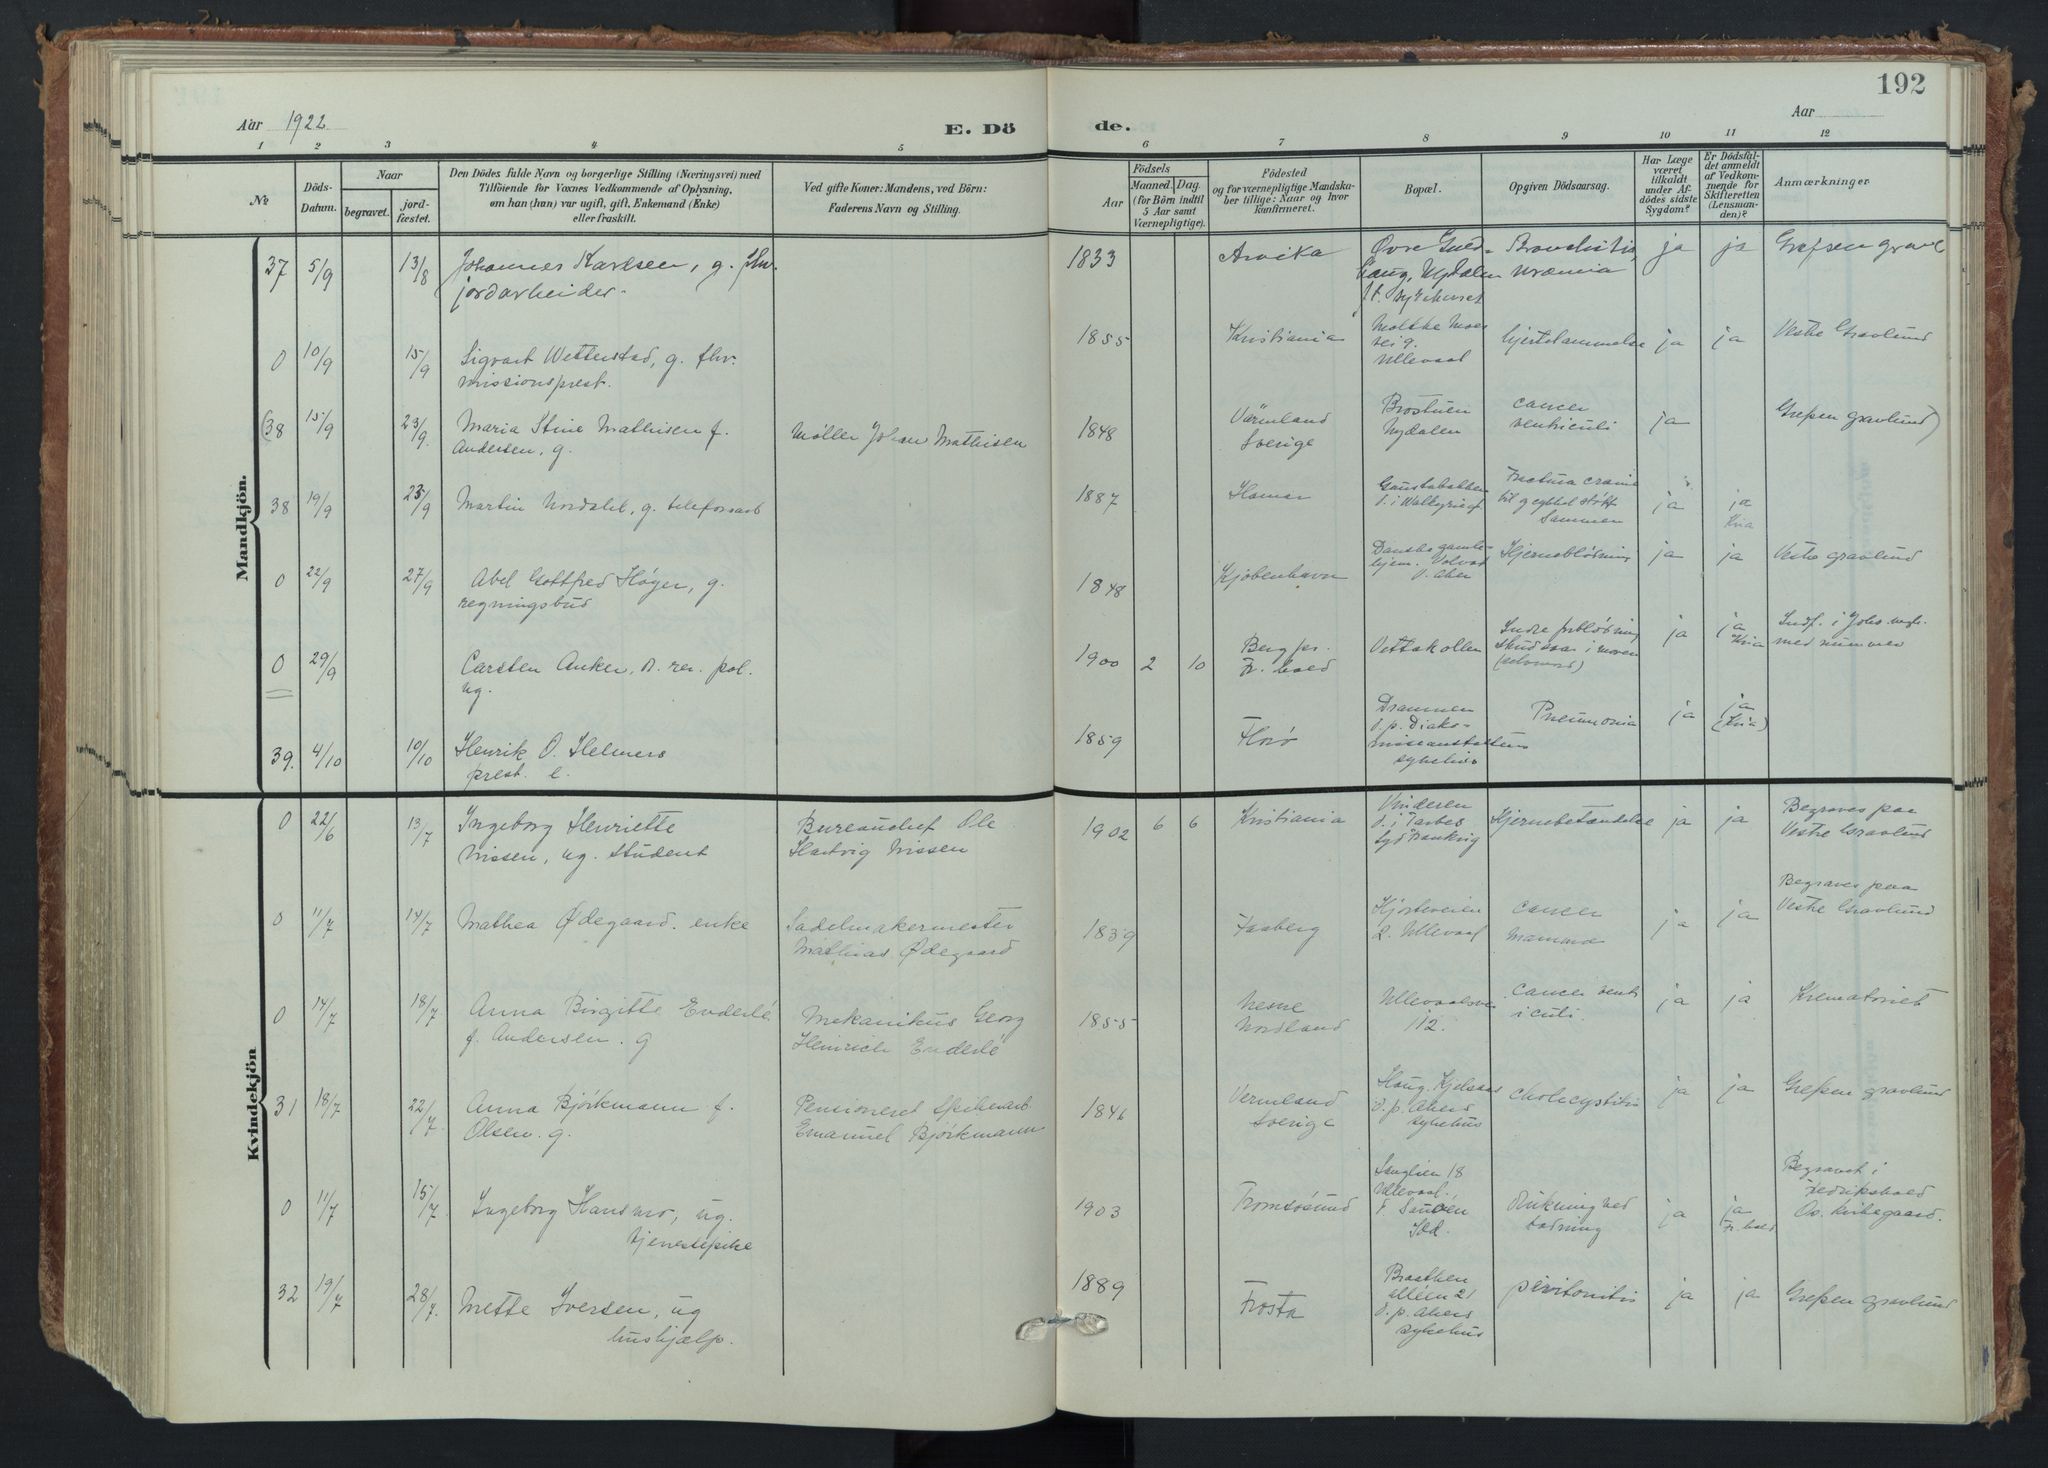 192
Aar 1922
E. Dö
de.
Aar
1 2 3 4 5 6 7 8 9 10 11 12
No
Döds-
Datum.
Naar
begravet.
jord-
fæstet.
Den Dödes fulde Navn og borgerlige Stilling (Næringsvei) med
Tilföiende for Voxnes Vedkommende af Oplysning,
om han (hun) var ugift, gift, Enkemand (Enke)
eller fraskilt.
Ved gifte Koner: Mandens, ved Börn:
Faderens Navn og Stilling.
Aar
Födsels
Maaned. Dag.
(for Börn indtil
5 Aar samt
Værnepligtige).
Födested
og for værnepligtige Mandska-
ber tillige: Naar og hvor
konfirmeret.
Bopæl.
Opgiven Dödsaarsag.
Har Læge
været
tilkaldt
under Af-
dödes sidste
Sygdom?
Er Dödsfal-
det anmeldt
af Vedkom-
mende for
Skifteretten
(Lensman-
den)?
Anmærkninger
Mandkjön.
37 5/9 13/8 Johannes Karlsen, g. fhv.
jordarbeider.
1833 Arvika
Øvre Guld-
haug, Nydalen
sykehuset
Bronchitis,
uræmia
ja ja Grefsen grav
0 10/9 15/9 Sigvart Wetterstad, g. fhv.
missionsprest.
1855 Kristiania
Moltke Moes
vei 9.
Ullevaal
hjertelammelse ja ja Vestre Gravlund
(38 15/9 23/9. Maria Stine Mathisen f.
Andersen, g.
Møller Johan Mathisen
1848 Värmland
Sverige
Brostuen
Nydalen
cancer
ventriculi
ja Grefsen gravlund)
38 19/9 25/9 Martin Nordahl, g. telefonarb
1887 Hamar
Fractura cranie
Sammen
ja ja
Kria
0 22/9 27/9 Abel Gottfred Høyer, g.
regningsbud
1848 Kjøbenhavn
Danske gamle-
hjem. Volvat
V. Aker
Hjerneblødning ja ja Vestre gravlund
0 29/9 Carsten Anker, st. rer. pol.
ug.
1900 2 10 Berg pr.
Fr. hald
Vettakollen
Indre forblødning
skudsaar i maven
(selvmord)
ja ja
Kria
Indf. i Johs
med nummer
39. 4/10 10/10 Henrik O. Helmers
prest. e.
1859 Florø
Drammen
d. p. Diako-
nisseanstaltens
sykehus
Pneumonia ja ja
(Kria)
Kvindekjön
0 22/6 13/7 Ingeborg Henriette
Nissen, ug. student
Bureauchef Ole
Hartvig Nissen
1902 6 6 Kristiania
Vinderen
d. i Tarbes
Sydfrankrig
Hjernebetændelse ja ja
Begraves paa
Vestre Gravlund
0 11/7 14/7 Mathea Ødegaard. enke
Sadelmakermester
Mathias Ødegaard
1839 Faaberg
Hjorteveien
2. Ullevaal
cancer
mamma
ja ja
Begraves paa
Vestre Gravlund
0 14/7 18/7 Anna Birgitte Enderlé
f. Andersen. g
Mekanikus Georg
Heinrich Enderlé
1855 Nesne
Nordland
Ullevaalsvei
112.
cancer ventr
iculi.
ja ja Krematoriet
31 18/7 22/7. Anna Bjørkmann f.
Olsen. g.
Pensioneret Spikerarb
Emanuel Bjørkmann
1846 Vermland
Sverige
Haug. Kjelsaas
d. p. Akers
sykehus
cholecystitis ja ja Grefsen gravlund
0 11/7 15/7. Ingeborg Hansmo, ug.
tjenestepike
1903 Tromsøsund
18
Ullevaal.
Idd.
drukning ved
badning
ja ja
Fr. hald
Begravet i
Fredrikshald
Os. kirkegaard.
32 19/7 28/7. Mette Iversen, ug
hushjælp.
1889 Frosta
Braathen
alléen 21
d. p. Akers
sykehus
peritonitis ja ja Grefsen gravlund